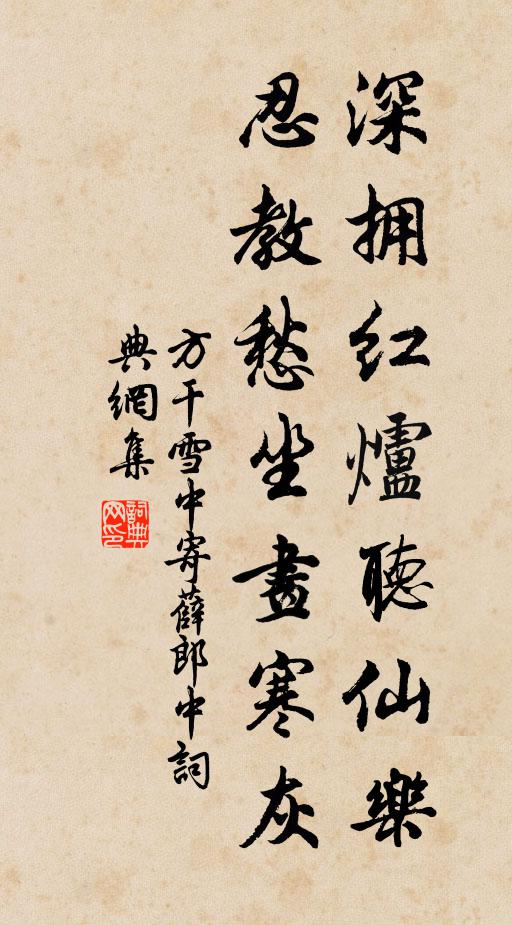 深拥红爐聽仙樂
忍教愁坐畫寒灰
方干雪中寄薛郎中詞
典網集
詞典
网印